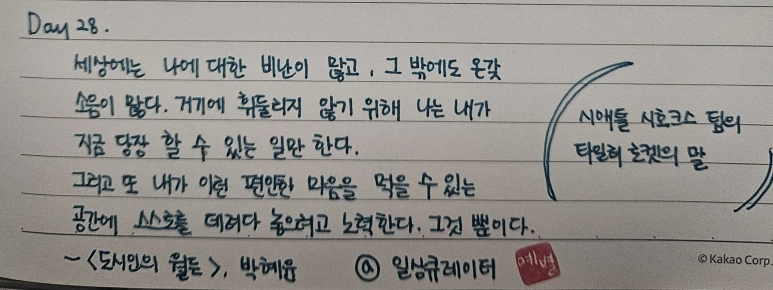 Day 28.
세상에는 나에 대한 비난이 많고, 그 밖에도 온갖
소음이 많다. 거기에 휘둘리지 않기 위해 나는 내가
지금 당장 할 수 있는 일만 한다.
그리고 또 내가 이런 편안한 마음을 먹을 수 있는
공간에 스스로를 데려다 놓으려고 노력한다. 그것 뿐이다.
- <도시인의 월든>, 박혜윤 @ 일상큐레이터 예별
시애틀 시호크스 팀의
타일러 로켓의 말
© Kakao Corp.